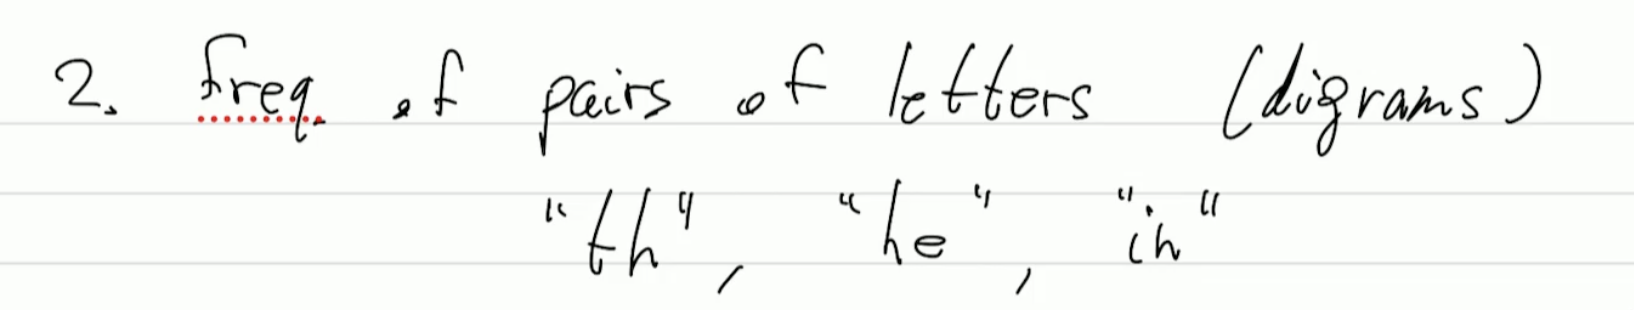 2. Freq. of pairs of letters (digrams)
"th", "he", "in"